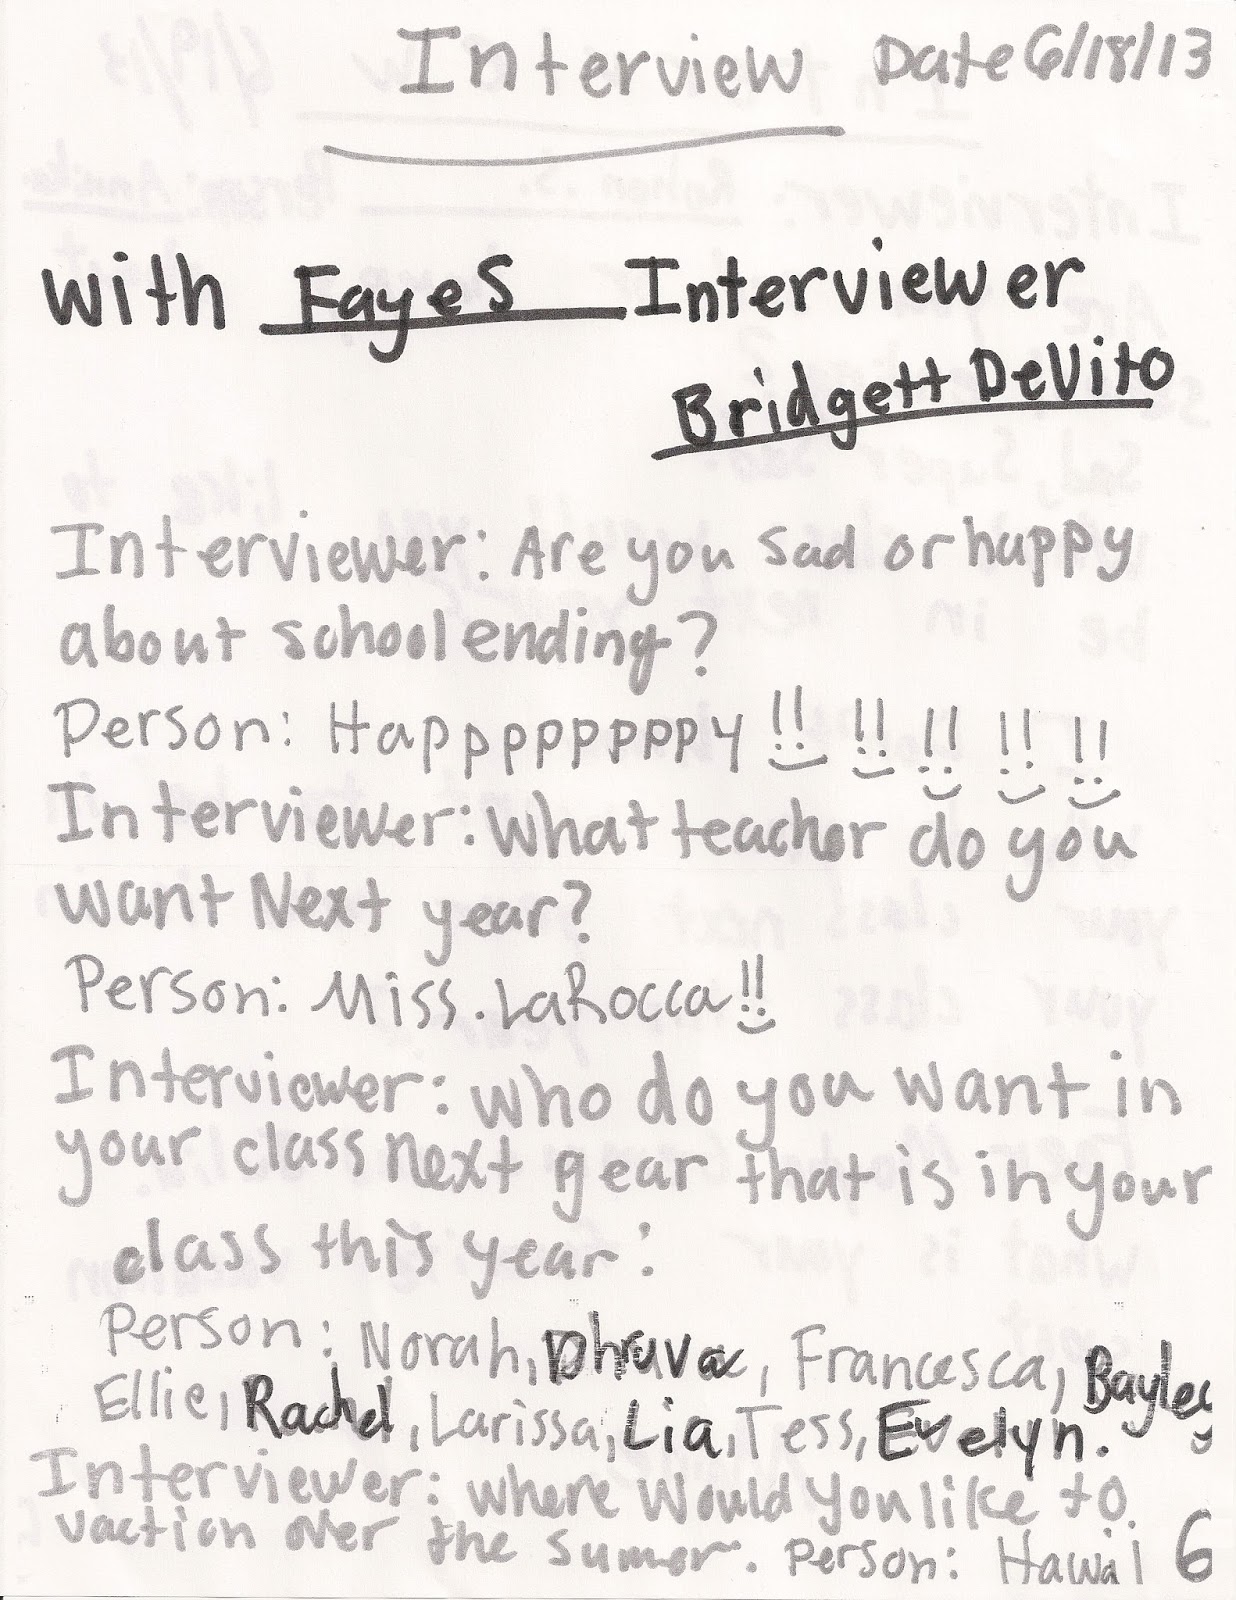 Interview Date 6/18/13
with Faye S Interviewer
Bridgett DeVito
Interviewer: Are you sad or happy
about school ending?
Person: Happppppppppy!! !! !! !! !!
Interviewer: What teacher do you
want Next year?
Person: Miss. LaRocca!!
Interviewer: who do you want in
your class next gear that is in your
class this year:
Person: Norah, Dhruva, Francesca, Bayley,
Ellie, Rachel, Larissa, Lia, Tess, Evelyn.
Interviewer: where would you like to
vaction over the sumer. Person: Hawaii 6